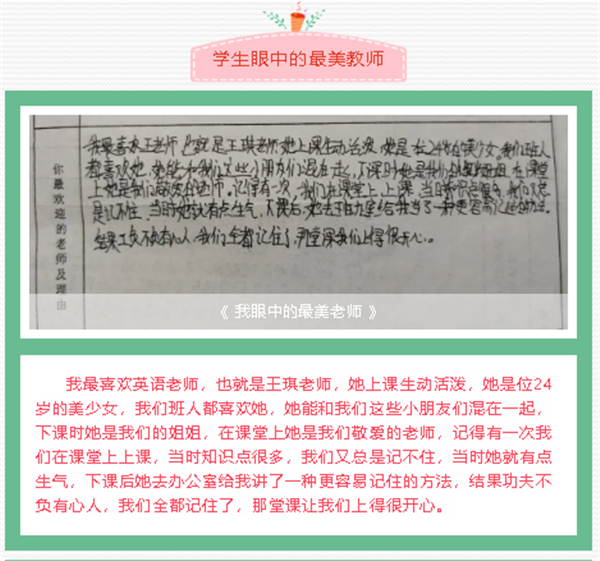 学生眼中的最美教师
你最欢迎的老师及理由
我最喜欢王老师,也就是王琪老师,她上课生动活泼,她是一位24岁的美少女,我们班人
都喜欢她,她能和我们这些小朋友们混在一起,下课时她是我们的姐姐,在课堂
上她是我们敬爱的老师,记得有一次,我们在课堂上上课,当时知识点很多,我们又总
是记不住,当时她就有点生气,下课后,她去办公室给我讲了一种更容易记住的方法,
结果工夫不负有心人,我们全都记住了,那堂课我们上得很开心。
《 我眼中的最美老师 》
我最喜欢英语老师，也就是王琪老师，她上课生动活泼，她是位24
岁的美少女，我们班人都喜欢她，她能和我们这些小朋友们混在一起，
下课时她是我们的姐姐，在课堂上她是我们敬爱的老师，记得有一次我
们在课堂上上课，当时知识点很多，我们又总是记不住，当时她就有点
生气，下课后她去办公室给我讲了一种更容易记住的方法，结果功夫不
负有心人，我们全都记住了，那堂课让我们上得很开心。